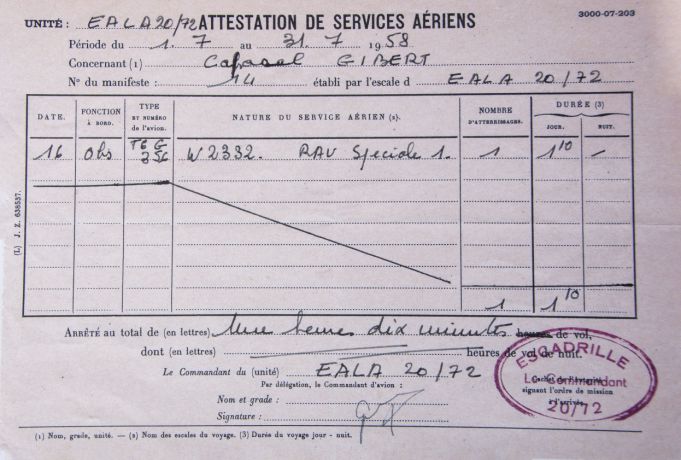 UNITÉ : EALA 20/72 ATTESTATION DE SERVICES AÉRIENS 3000-07-203
Période du 1. 7 au 31. 7 1958
Concernant (1) Caporal GIBERT
N° du manifeste : 14 établi par l'escale d EALA 20/72
DATE. FONCTION À BORD. TYPE ET NUMÉRO de l'avion. NATURE DU SERVICE AÉRIEN (2). NOMBRE D'ATTERRISSAGES. DURÉE (3)
JOUR. NUIT.
16 Obs T6 G 356 W2332. RAV Spéciale 1. 1 1 10 –
1 1 10
ARRÊTÉ au total de (en lettres) Une heure dix minutes heures de vol,
dont (en lettres) heures de vol de nuit.
Le Commandant du (unité) EALA 20/72
Par délégation, le Commandant d'avion :
Nom et grade :
Signature :
ESCADRILLE
Le Commandant
20/72
signant l'ordre de mission
à l'arrivée.
(1) Nom, grade, unité. — (2) Nom des escales du voyage. (3) Durée du voyage jour - nuit.
(L) J. Z. 638537.